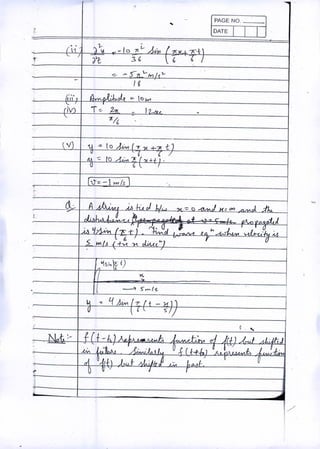 PAGE NO.
DATE
(ii) ∂²y/∂t = -10 π²/36 sin (π/6 x + π/6 t)
= -5π²/18 m/s²
(iii) Amplitude = 10m
(iv) T = 2π/π/6 = 12sec
(v) y = 10 sin (π/6 x + π/6 t)
y = 10 sin π/6 (x+t)
v = -1 m/s
Q. A string is tied b/w x=0 and x=∞ and the
disturbance at v=5m/s propagated
is 4 sin (π/6 t). Find wave eqⁿ when velocity is
5 m/s (+ve x direcⁿ)
4 sin(π/6 t)
x
→ 5m/s
y = 4 sin (π/6 (t - x/5))
Note:- f(t-t₀) represents function of f(t) but shifted
in future. Similarly f(t+t₀) represents function
of f(t) but shifted in past.